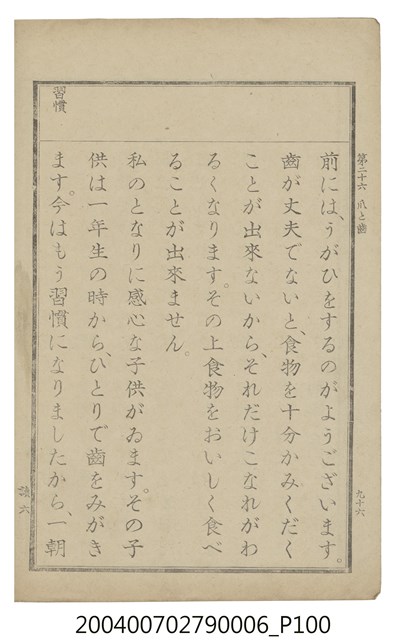 第二十六 爪と齒
九十六
前には、うがひをするのがようございます。
齒が丈夫でないと、食物を十分かみくだく
ことが出來ないから、それだけこなれがわ
るくなります。その上食物をおいしく食べ
ることが出來ません。
私のとなりに感心な子供がゐます。その子
供は一年生の時から、ひとりで齒をみがき
ます。今はもう習慣になりましたから、一朝
習慣
讀六
200400702790006_P100